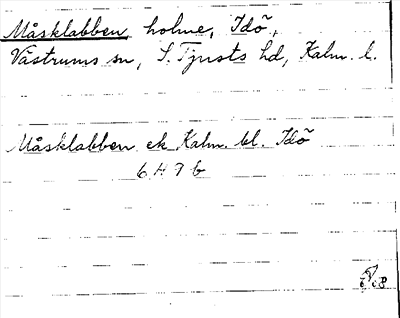 Måsklabben, holme, Idö,
Västrums sn, S. Tjusts hd, Kalm. l.
Måsklabben ek. Kalm. bl. Idö
6 H 7 b